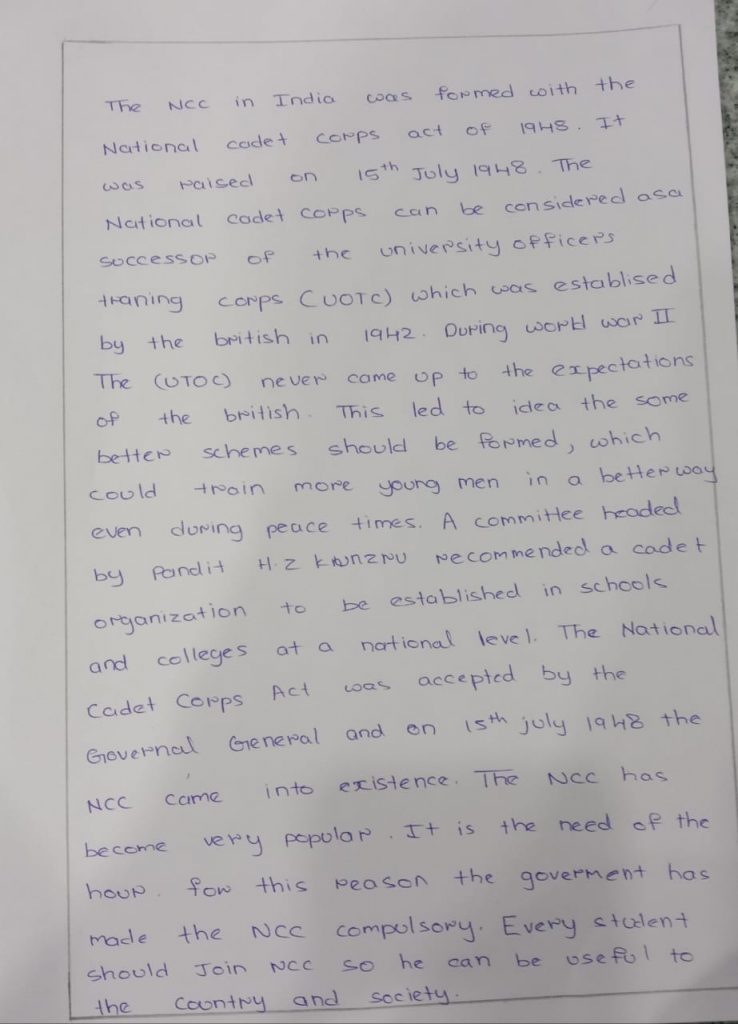 The NCC in India was formed with the
National cadet corps act of 1948. It
was raised on 15th July 1948. The
National cadet corps can be considered asa
successor of the university officers
traning corps (UOTC) which was establised
by the british in 1942. During world war II
The (UTOC) never came up to the expectations
of the british. This led to idea the some
better schemes should be formed, which
could train more young men in a better way
even during peace times. A committee headed
by Pandit H.Z kunzru recommended a cadet
organization to be established in schools
and colleges at a national level. The National
Cadet Corps Act was accepted by the
Governal General and on 15th july 1948 the
NCC came into existence. The NCC has
become very popular. It is the need of the
hour. for this reason the goverment has
made the NCC compulsory. Every student
should Join NCC so he can be useful to
the country and society.